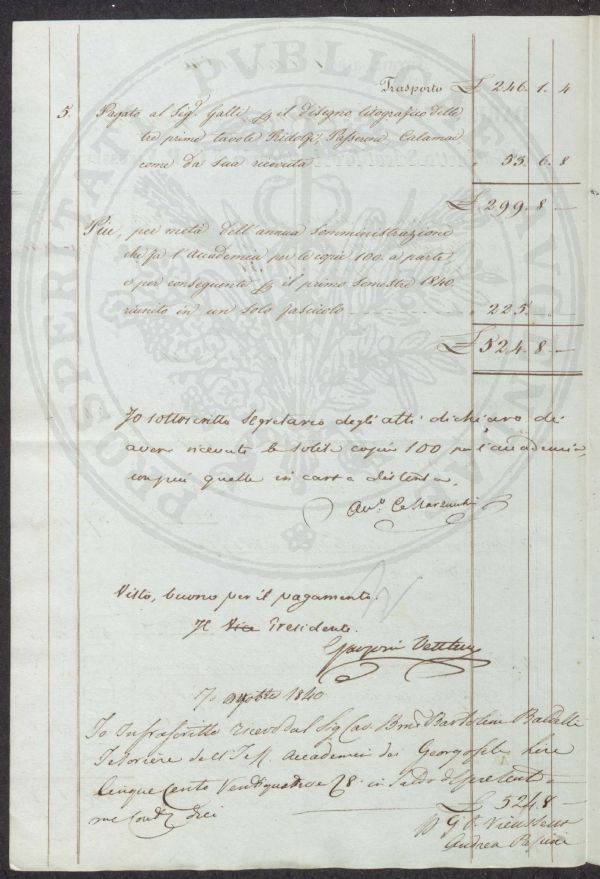 Trasporto £ 246. 1. 4
5. Pagato al Sig. Galli il disegno litografico delle
tre prime tavole Ridolfi, Passerini, Calamai
come da sua ricevuta " 53. 6. 8
£ 299. 8 —
Più, per metà dell'annua somministrazione
che fa l'Accademia per le copie 100. a parte
e per conseguente il primo semestre 1840.
riunito in un solo fascicolo " 225. —
£ 524. 8 —
Io sottoscritto Segretario degli atti dichiaro di
aver ricevute le solite copie 100 per l'accademia,
compie quelle in carta distinta.
Visto, buono per il pagamento.
Il Vice Presidente
1840
Io Infrascritto ricevo dal Sig Cav. Bartolini Baldelli
Tesoriere dell' Accademia dei Georgofili Lire
Cinque Cento Ventiquattro e 8 in Saldo del presente
£ 524.8 —
G. P. Vieusseux
Andrea